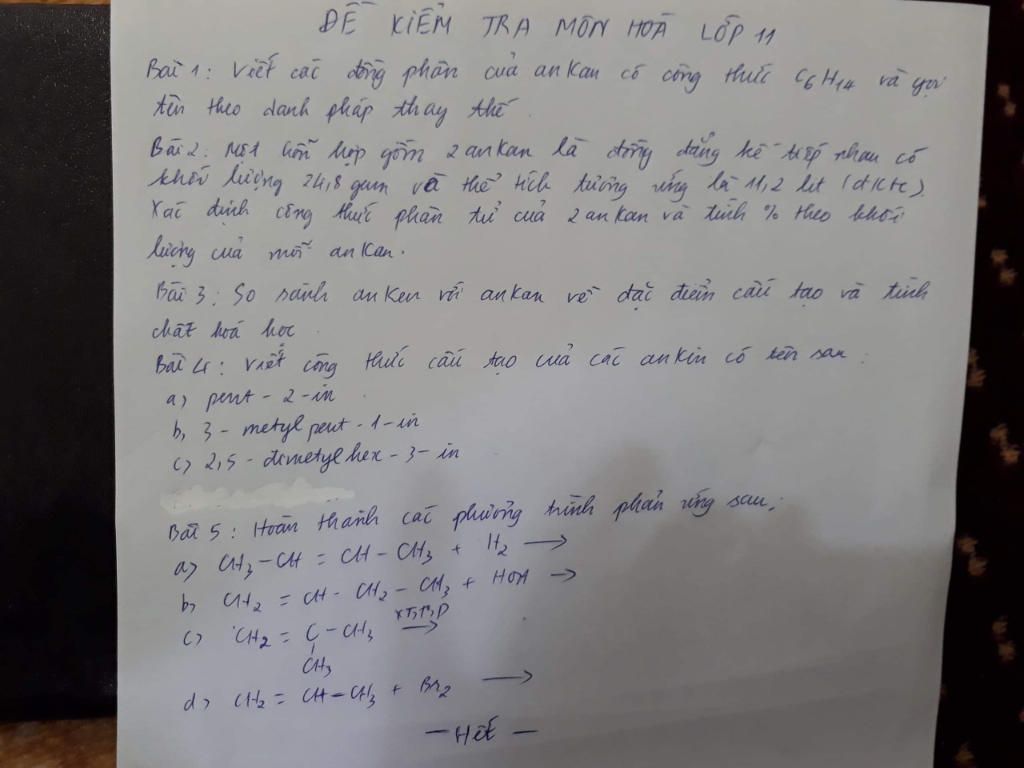 ĐỀ KIỂM TRA MÔN HOÁ LỚP 11
Bài 1: Viết các đồng phân của ankan có công thức C6H14 và gọi
tên theo danh pháp thay thế.
Bài 2: Một hỗn hợp gồm 2 ankan là đồng đẳng kế tiếp nhau có
khối lượng 24,8 gam và thể tích tương ứng là 11,2 lít (đktc).
Xác định công thức phân tử của 2 ankan và tính % theo khối
lượng của mỗi ankan.
Bài 3: So sánh anken với ankan về đặc điểm cấu tạo và tính
chất hoá học.
Bài 4: Viết công thức cấu tạo của các ankin có tên sau:
a) pent - 2 - in
b, 3 - metyl pent - 1 - in
c) 2,5 - đimetyl hex - 3 - in
Bài 5: Hoàn thành các phương trình phản ứng sau:
a) CH3 - CH = CH - CH3 + H2 →
b, CH2 = CH - CH2 - CH3 + HOH →
xt, t°, p
c) CH2 = C - CH3 →
CH3
d) CH2 = CH - CH3 + Br2 →
- Hết -